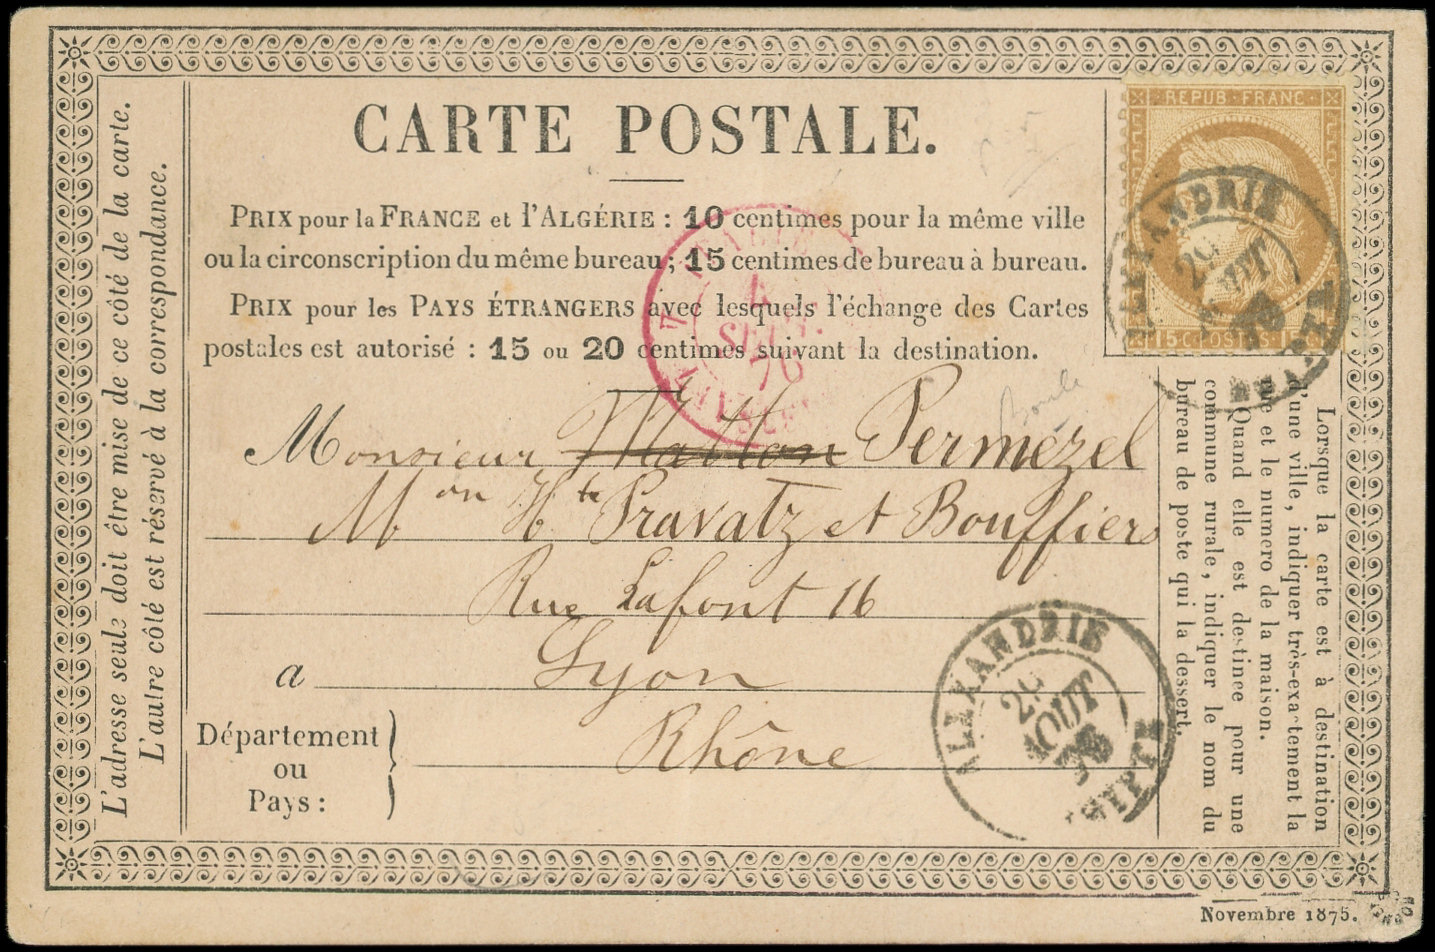 CARTE POSTALE.
REPUB. FRANC.
15 C. POSTES. 15
ALEXANDRIE
29
AOUT
76
EGYPTE
PRIX pour la FRANCE et l'ALGÉRIE : 10 centimes pour la même ville
ou la circonscription du même bureau ; 15 centimes de bureau à bureau.
PRIX pour les PAYS ÉTRANGERS avec lesquels l'échange des Cartes
postales est autorisé : 15 ou 20 centimes suivant la destination.
ITALIE
4
SEPT.
76
Monsieur Permezel
Mon Hte Pravatz et Bouffiers
Rue Lafont 16
a Lyon
Département
ou
Pays :
Rhône
ALEXANDRIE
29
AOUT
76
EGYPTE
L'adresse seule doit être mise de ce côté de la carte.
L'autre côté est réservé à la correspondance.
Lorsque la carte est à destination
d'une ville, indiquer très-exactement la
rue et le numero de la maison.
Quand elle est destinee pour une
commune rurale, indiquer le nom du
bureau de poste qui la dessert.
Novembre 1875.